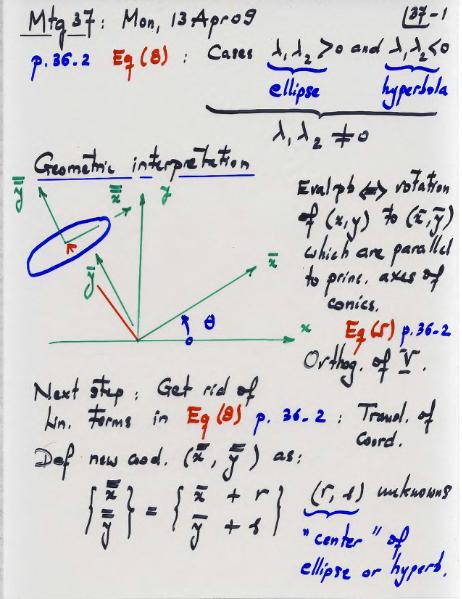 Mtg 37: Mon, 13 Apr 09
37-1
p.36-2 Eq(8): Cases λ₁λ₂ >0 and λ₁λ₂<0
ellipse hyperbola
λ₁λ₂ ≠ 0
Geometric interpretation
y̿ x̿ y
y̅ x̅
θ x
Eval pb ⇔ rotation
of (x,y) to (x̅,y̅)
which are parallel
to princ. axes of
conics.
Eq(5) p.36-2
Orthog. of V.
Next step: Get rid of
lin. terms in Eq(8) p. 36-2: Transl. of
coord.
Def new cood. (x̿, y̿) as:
{x̿ y̿} = {x̅ + r y̅ + s} (r, s) unknowns
"center" of
ellipse or hyperb.